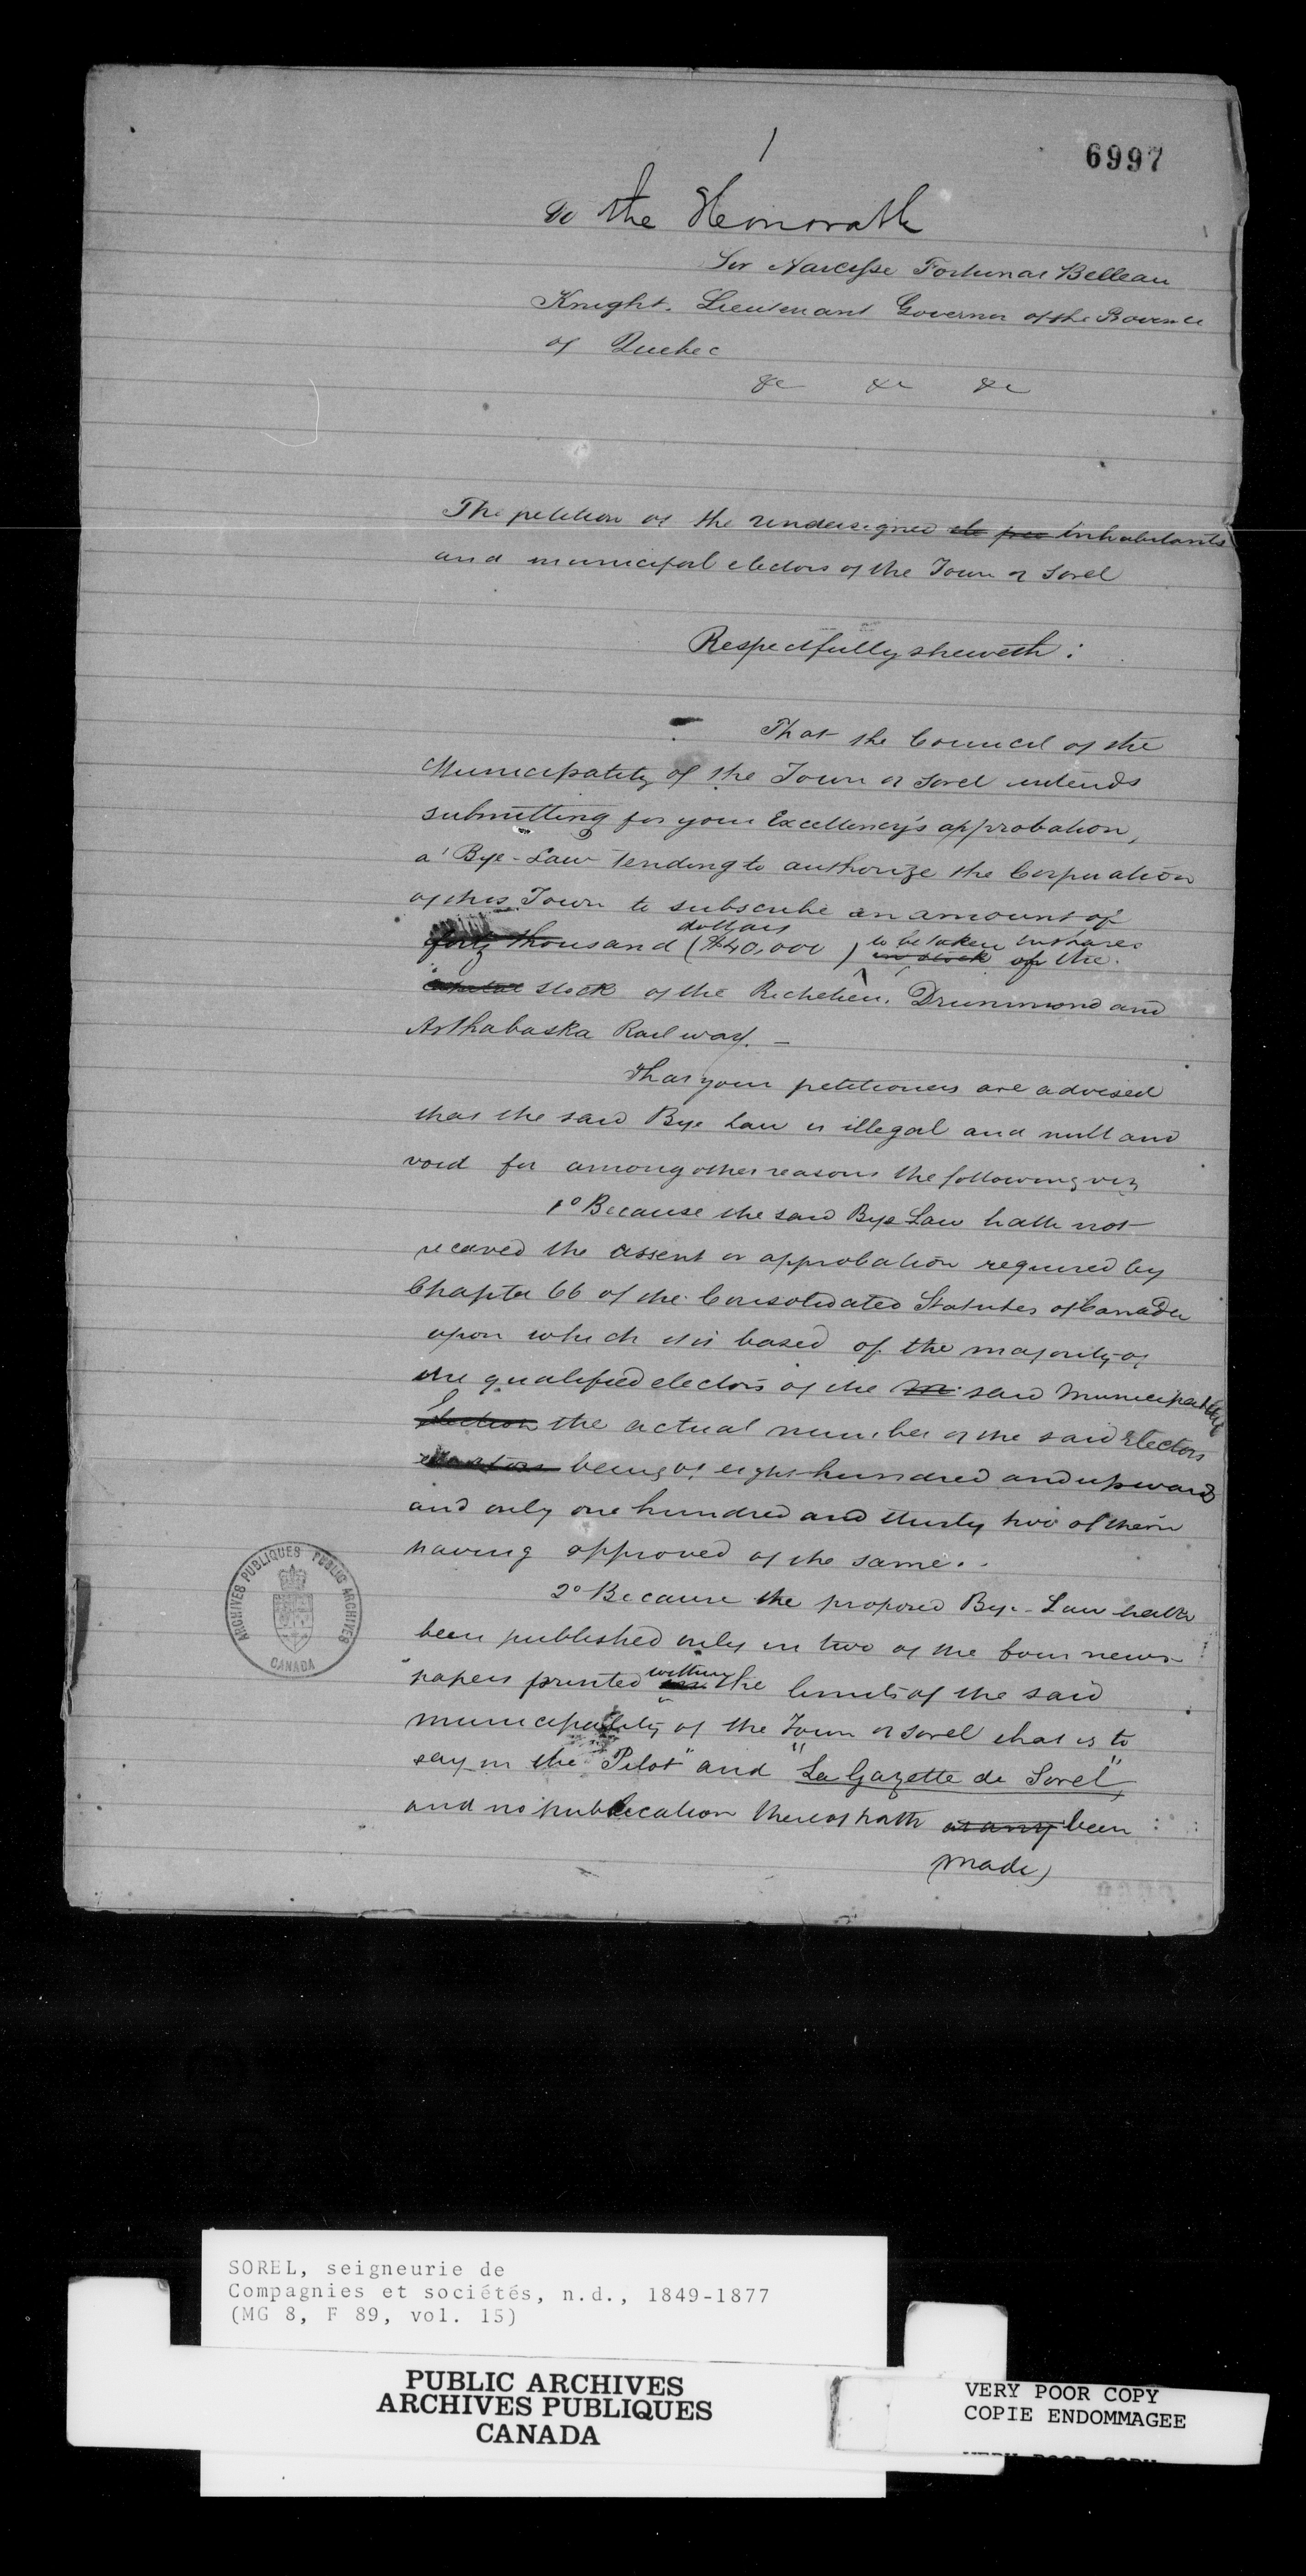 1
6997
To the Honorable
Sir Narcisse Fortunat Belleau
Knight. Lieutenant Governor of the Province
of Quebec
&c &c &c
The petition of the undersigned inhabitants
and municipal electors of the Town of Sorel
Respectfully sheweth:
That the Council of the
Municipality of the Town of Sorel intends
submitting for your Excellency's approbation,
a Bye-Law tending to authorize the Corporation
of this Town to subscribe an amount of
dollars
forty thousand ($40,000) to be taken in shares
in stock of the
capital stock of the Richelieu, Drummond and
Arthabaska Railway.
That your petitioners are advised
that the said Bye Law is illegal and null and
void for among other reasons the following viz
1º Because the said Bye Law hath not
received the assent or approbation required by
Chapter 66 of the Consolidated Statutes of Canada
upon which it is based of the majority of
the qualified electors of the said Municipality
Election the actual number of the said Electors
being of eight hundred and upwards
and only one hundred and thirty two of them
having approved of the same.
2º Because the proposed Bye-Law hath
been published only in two of the four news-
papers printed within the limits of the said
municipality of the Town of Sorel that is to
say in the "Pilot" and "La Gazette de Sorel",
and no publication thereof hath as any been
made
ARCHIVES PUBLIQUES PUBLIC ARCHIVES
CANADA
SOREL, seigneurie de
Compagnies et sociétés, n.d., 1849-1877
(MG 8, F 89, vol. 15)
PUBLIC ARCHIVES
ARCHIVES PUBLIQUES
CANADA
VERY POOR COPY
COPIE ENDOMMAGEE
VERY POOR COPY